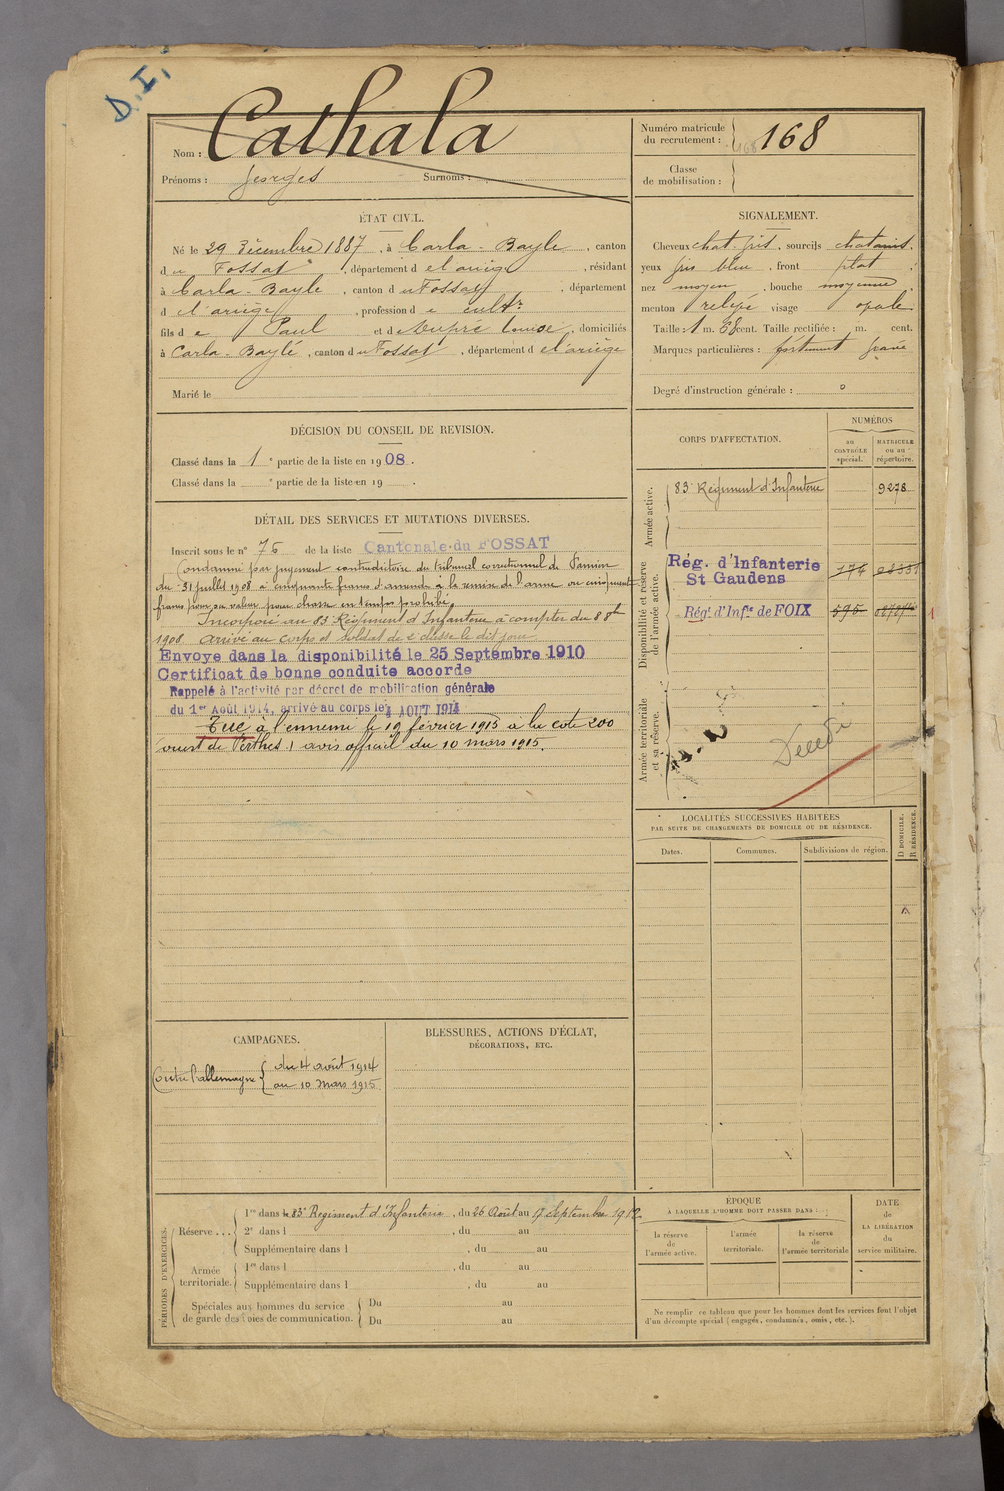 D.I.
Nom : Cathala
Prénoms : Georges Surnoms :
Numéro matricule du recrutement : 168
Classe de mobilisation :
ÉTAT CIVIL.
Né le 29 Décembre 1887, à Carla-Bayle, canton
du Fossat, département de l'ariège, résidant
à Carla-Bayle, canton du Fossat, département
d l'ariège, profession de cultr
fils de Paul et de Dupré Louise, domiciliés
à Carla-Bayle, canton du Fossat, département de l'ariège
Marié le
SIGNALEMENT.
Cheveux chat. , sourcils chatains.
yeux gris bleu, front plat
nez moyen, bouche moyenne,
menton relevé visage ovale
Taille : 1 m. cent. Taille rectifiée : m. cent.
Marques particulières : fortement gravé
Degré d'instruction générale : 0
DÉCISION DU CONSEIL DE REVISION.
Classé dans la 1e partie de la liste en 1908.
Classé dans la e partie de la liste en 19 .
DÉTAIL DES SERVICES ET MUTATIONS DIVERSES.
Inscrit sous le n° 76 de la liste Cantonale du FOSSAT
Condamné par jugement contradictoire du tribunal correctionnel de Pamiers
du 31 juillet 1908 à cinquante francs d'amende à la remise de l'arme ou cinquante
francs pour sa valeur pour chasse en temps prohibé.
Incorporé au 83 Régiment d'Infanterie à compter du 8 8bre
1908 arrivé au corps et soldat de 2 classe le dit jour
Envoye dans la disponibilité le 25 Septembre 1910
Certificat de bonne conduite accorde
Rappelé à l'activité par décret de mobilisation générale
du 1er Août 1914, arrivé au corps le 4 AOUT 1914
Tué à l'ennemi le 19 février 1915 à la cote 200
(ouest de Perthes) avis officiel du 10 mars 1915.
CORPS D'AFFECTATION.
NUMÉROS
au CONTRÔLE spécial.
MATRICULE ou au répertoire.
Armée active.
83e Régiment d'Infanterie 9278
Disponibilité et réserve de l'armée active.
Rég. d'Infanterie
St Gaudens 174
Régt d'Infie de FOIX 595
Armée territoriale et sa réserve.
Décédé
LOCALITÉS SUCCESSIVES HABITÉES
PAR SUITE DE CHANGEMENTS DE DOMICILE OU DE RÉSIDENCE.
Dates. Communes. Subdivisions de région. D DOMICILE. R RÉSIDENCE.
CAMPAGNES.
Contre l'allemagne { du 4 août 1914
au 10 Mars 1915.
BLESSURES, ACTIONS D'ÉCLAT,
DÉCORATIONS, ETC.
PÉRIODES D'EXERCICES.
Réserve... 1re dans le 83e Regiment d'Infanterie, du 26 Août au 17 Septembre 1912
2e dans l , du au
Supplémentaire dans l , du au
Armée territoriale. 1re dans l , du au
Supplémentaire dans l , du au
Spéciales aux hommes du service de garde des voies de communication. Du au
Du au
ÉPOQUE
À LAQUELLE L'HOMME DOIT PASSER DANS :
la réserve de l'armée active.
l'armée territoriale.
la réserve de l'armée territoriale
DATE de LA LIBÉRATION du service militaire.
Ne remplir ce tableau que pour les hommes dont les services font l'objet
d'un décompte spécial (engagés, condamnés, omis, etc.).